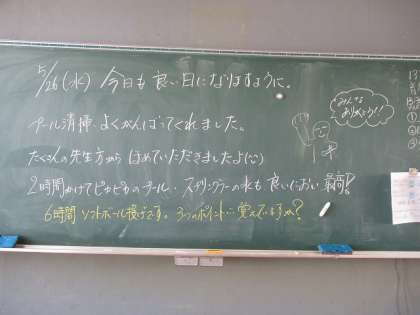 5/26(水) 今日も良い日になりますように。
プール清掃、よくがんばってくれました。
たくさんの先生方から ほめていただきましたよ(^^)
2時間かけてピカピカのプール・スプリンクラーの水も良いにおい 最高!!
6時間 ソフトボール投げです。3つのポイント… 覚えていますか?
みんな
ありがとう!!
①
②
③